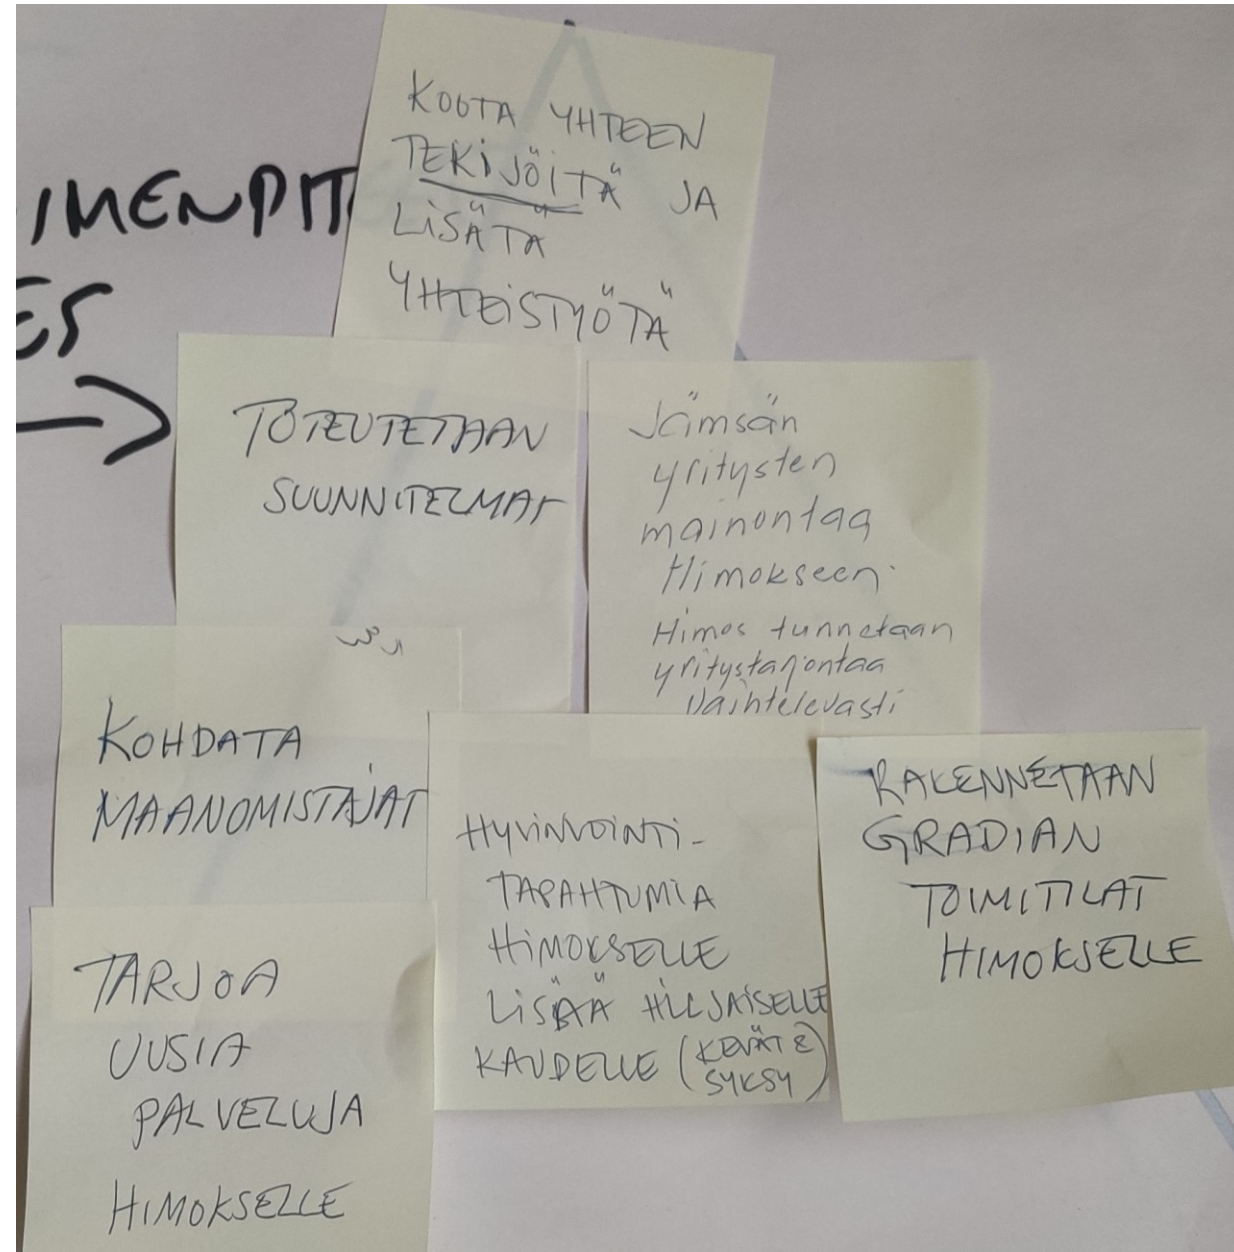 KOOTA YHTEEN
TEKIJÖITÄ JA
LISÄTÄ
YHTEISTYÖTÄ
IMENPIT
ES
TOTEUTETAAN
SUUNNITELMAT
Jämsän
yritysten
mainontaa
Himokseen.
Himos tunnetaan
yritystarjontaa
Vaihtelevasti
KOHDATA
MAANOMISTAJAT
HYVINVOINTI-
TAPAHTUMIA
HIMOKSELLE
LISÄÄ HILJAISELLE
KAUDELLE (KEVÄT &
SYKSY)
RAKENNETAAN
GRADIAN
TOIMITILAT
HIMOKSELLE
TARJOA
UUSIA
PALVELUJA
HIMOKSELLE